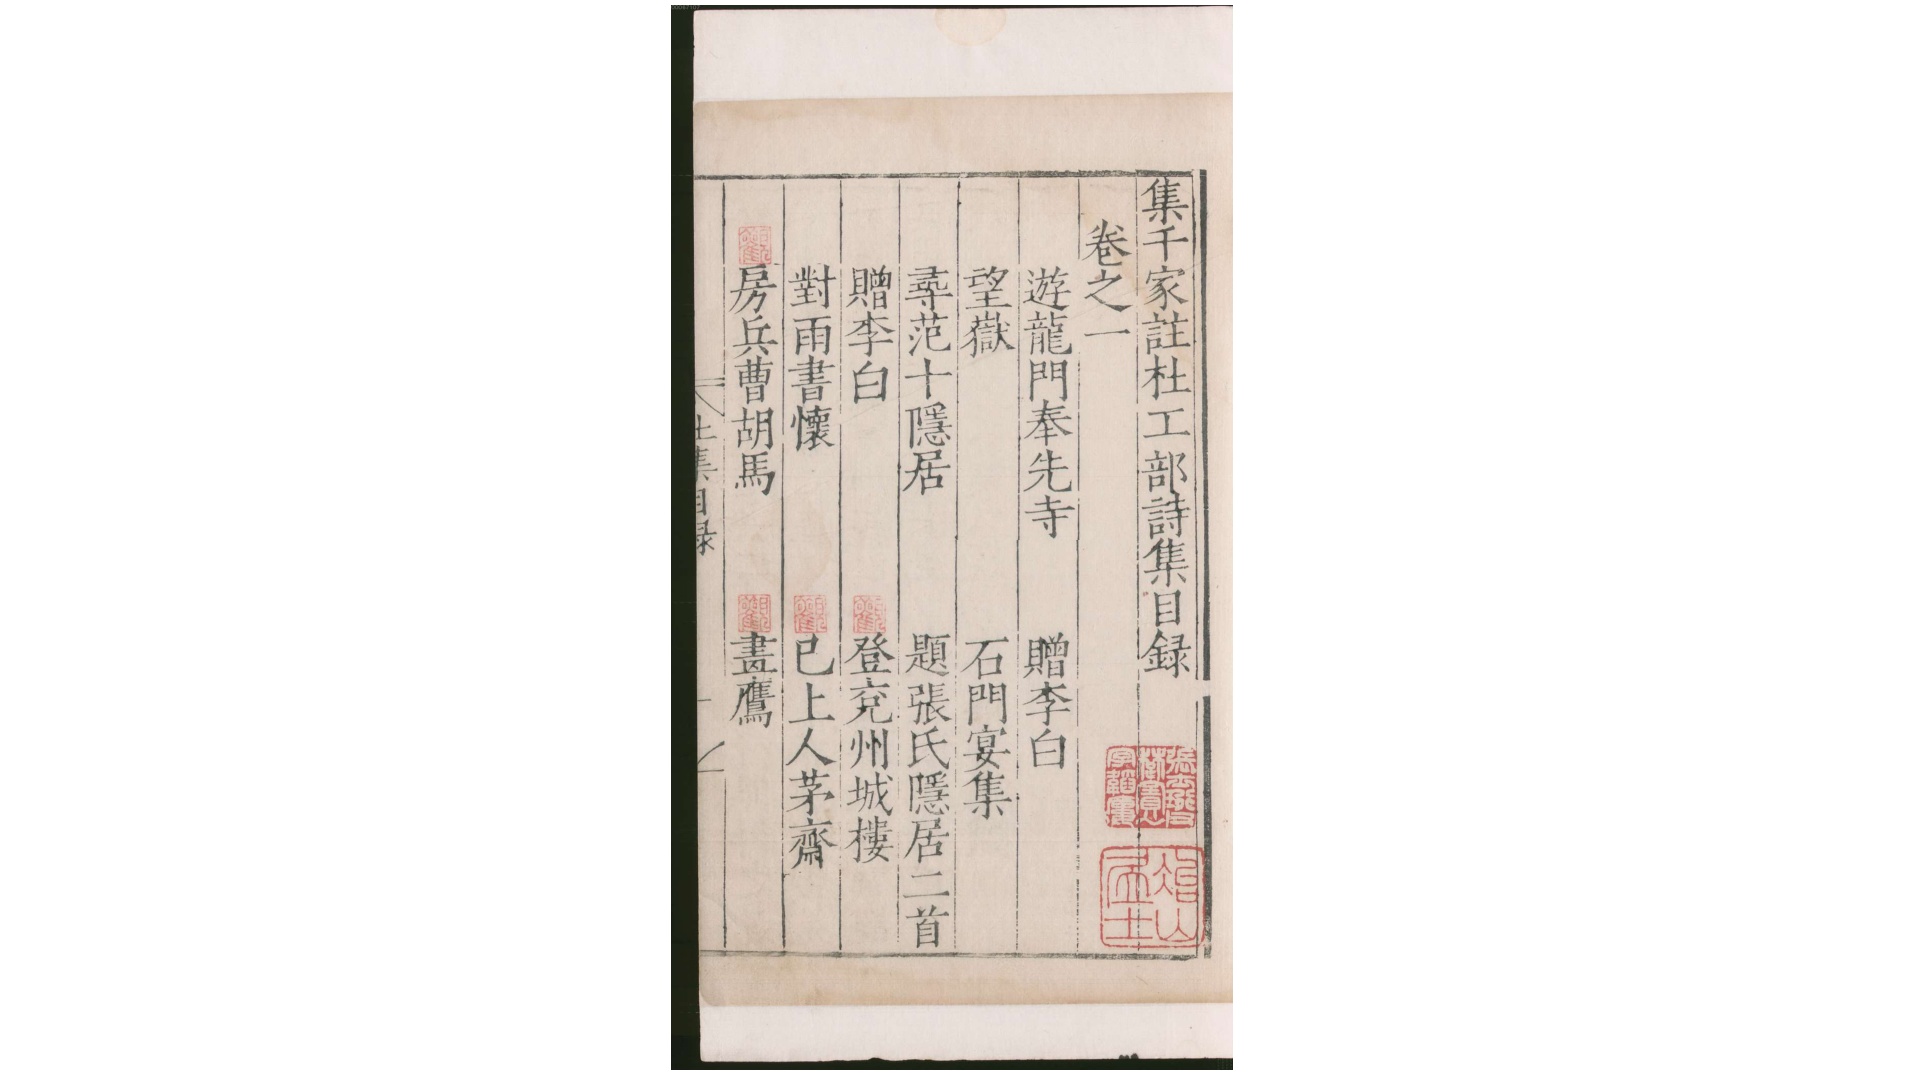 集千家註杜工部詩集目録
卷之一
遊龍門奉先寺 贈李白
望嶽 石門宴集
尋范十隱居 題張氏隱居二首
贈李白 登兖州城樓
對雨書懷 已上人茅齋
房兵曹胡馬 畫鷹
杜集目録